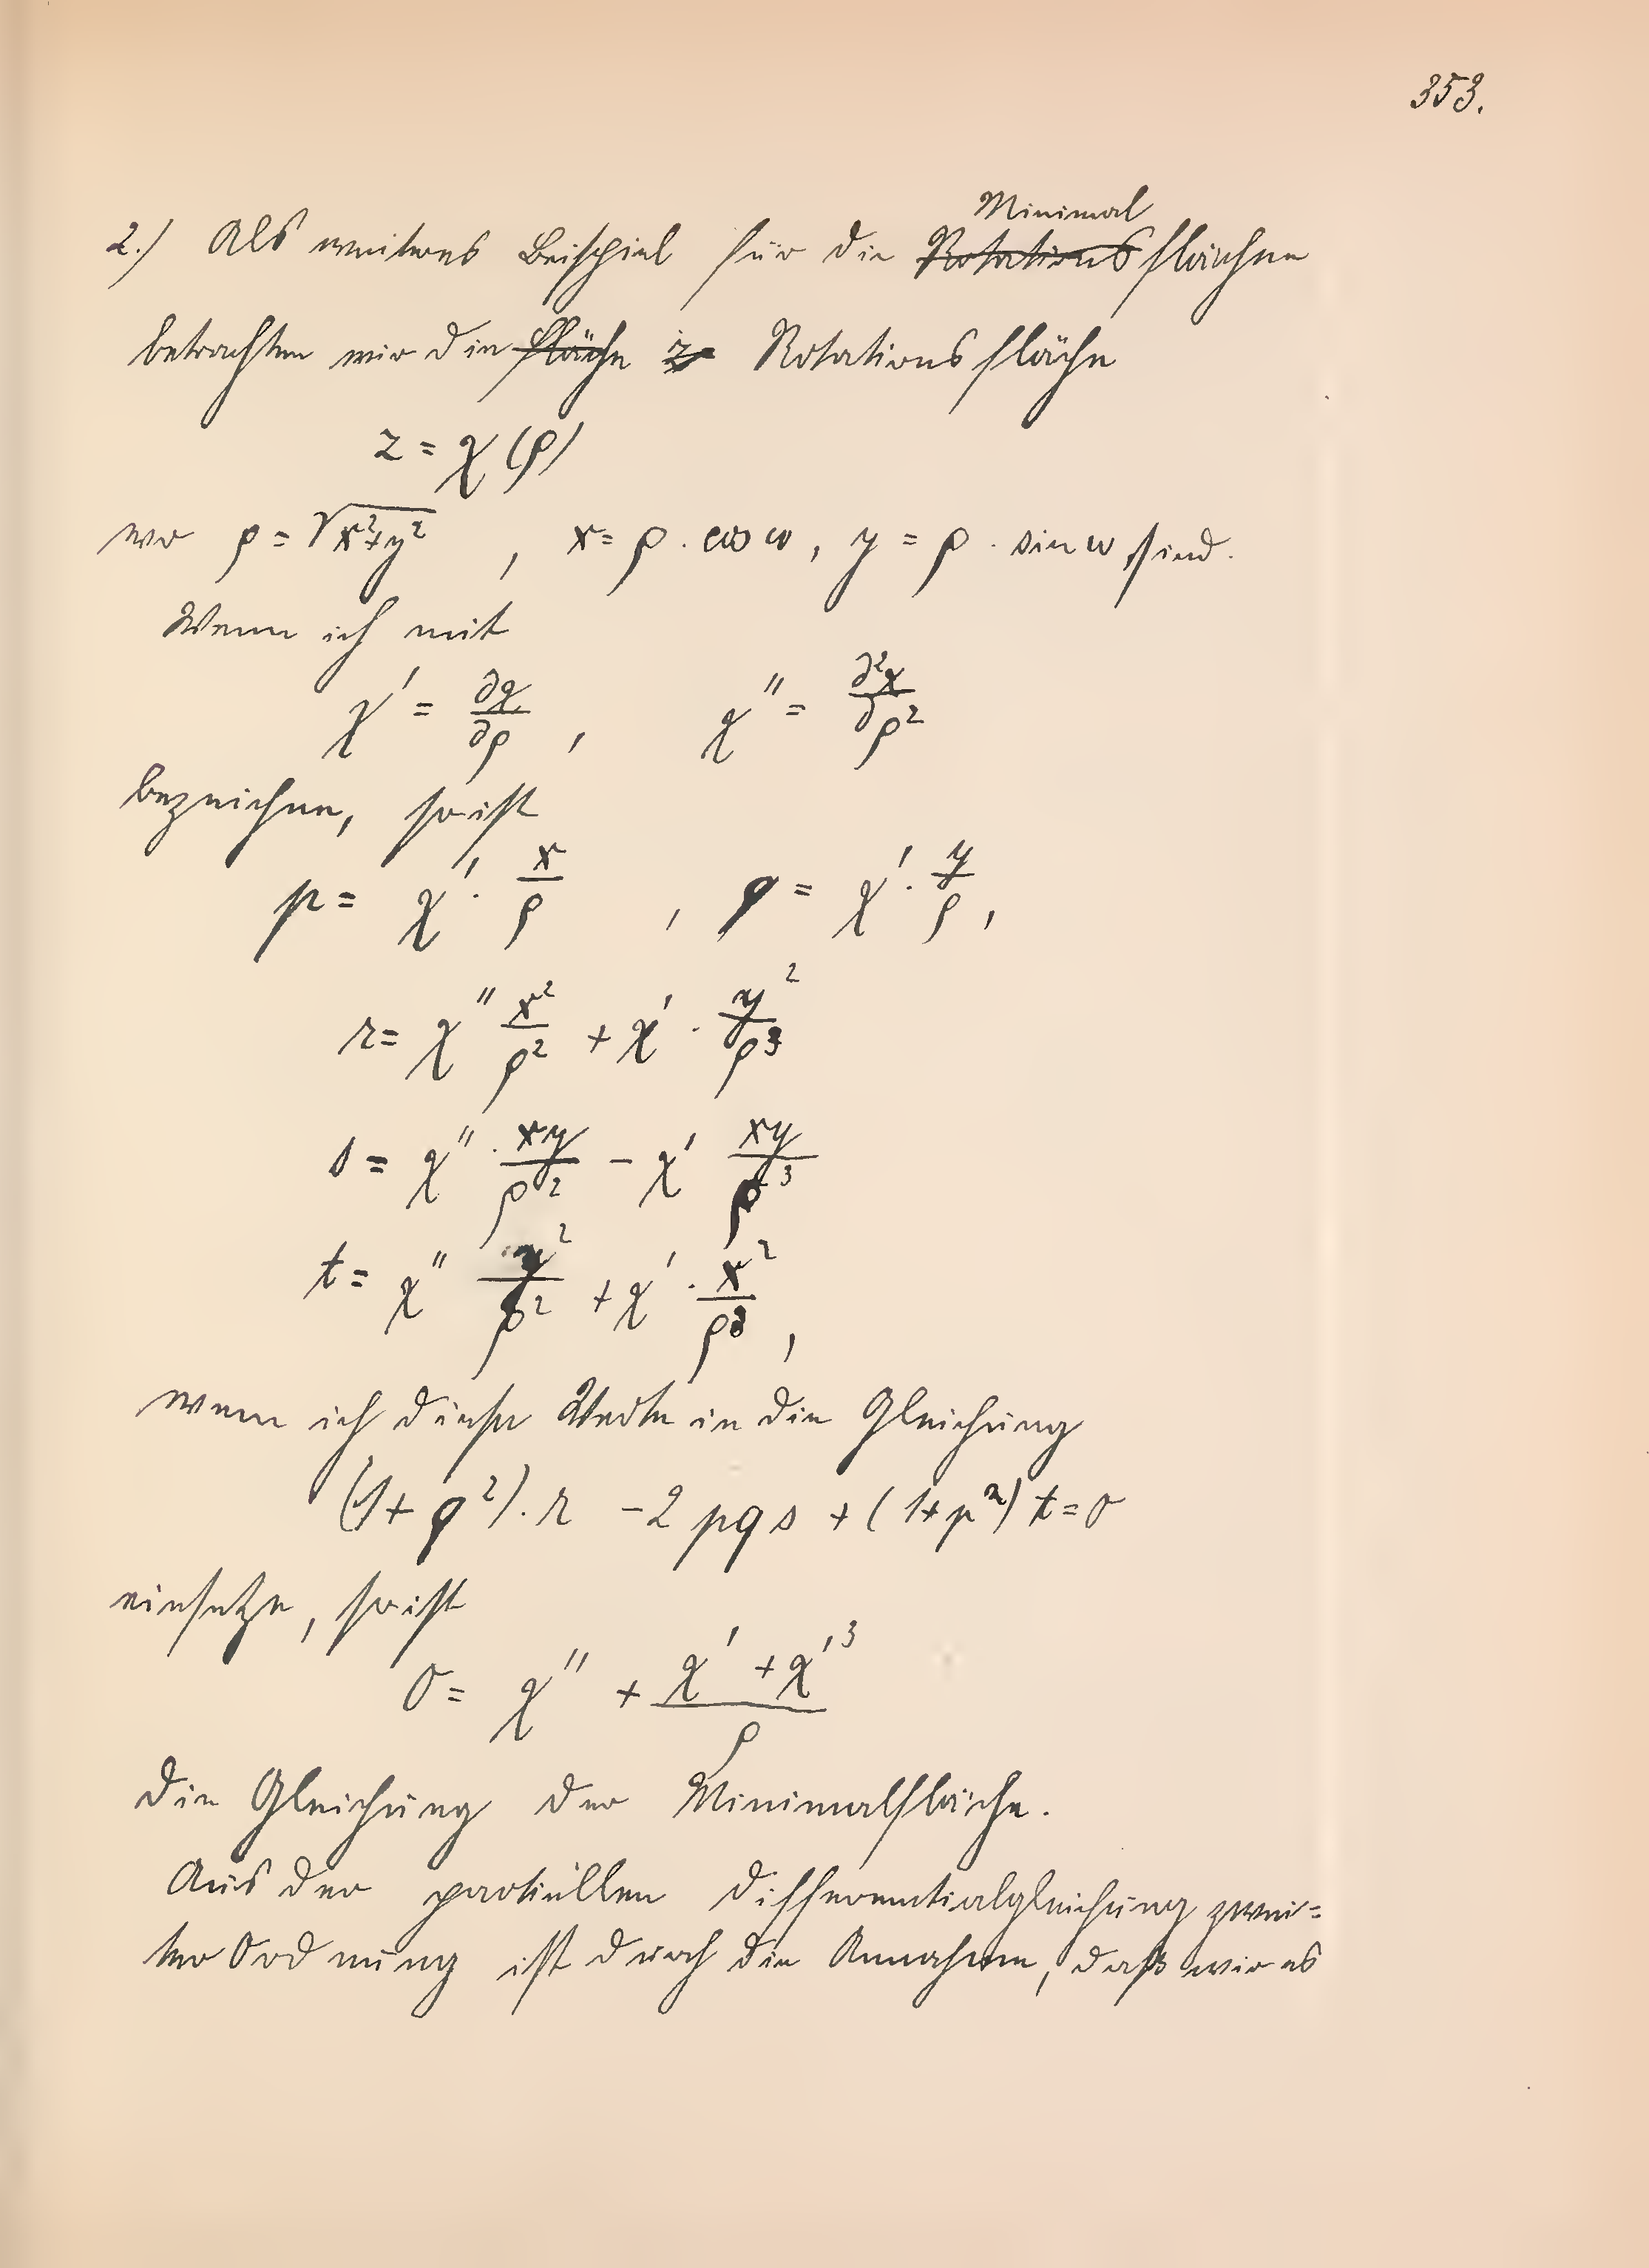 353.
2.) Als weiteres Beispiel für die ~~Rotations~~ Minimal flächen
betrachten wir die ~~Fläche z=~~ Rotationsfläche
z = χ(ρ)
wo ρ = √(x²+y²) , x = ρ . cos ω , y = ρ . sin ω sind.
Wenn ich mit
χ' = ∂χ/∂ρ , χ'' = ∂²χ/∂ρ²
bezeichne, so ist
p = χ' . x/ρ , q = χ' . y/ρ ,
r = χ'' x²/ρ² + χ' . y²/ρ³
s = χ'' . xy/ρ² − χ' xy/ρ³
t = χ'' y²/ρ² + χ' . x²/ρ³ ,
wenn ich diese Werte in die Gleichung
(1 + q²) . r − 2 pqs + (1+p²) t = 0
einsetze, so ist
0 = χ'' + (χ' + χ'³)/ρ
die Gleichung der Minimalfläche.
Aus der partiellen Differentialgleichung zwei=
ter Ordnung ist durch die Annahme, daß wir es